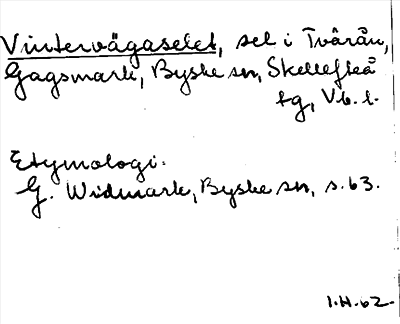 Vintervägaselet, sel i Tvärån,
Gagsmark, Byske sn, Skellefteå
tg, Vb. l.
Etymologi:
G. Widmark, Byske sn, s. 63.
1.H.62.